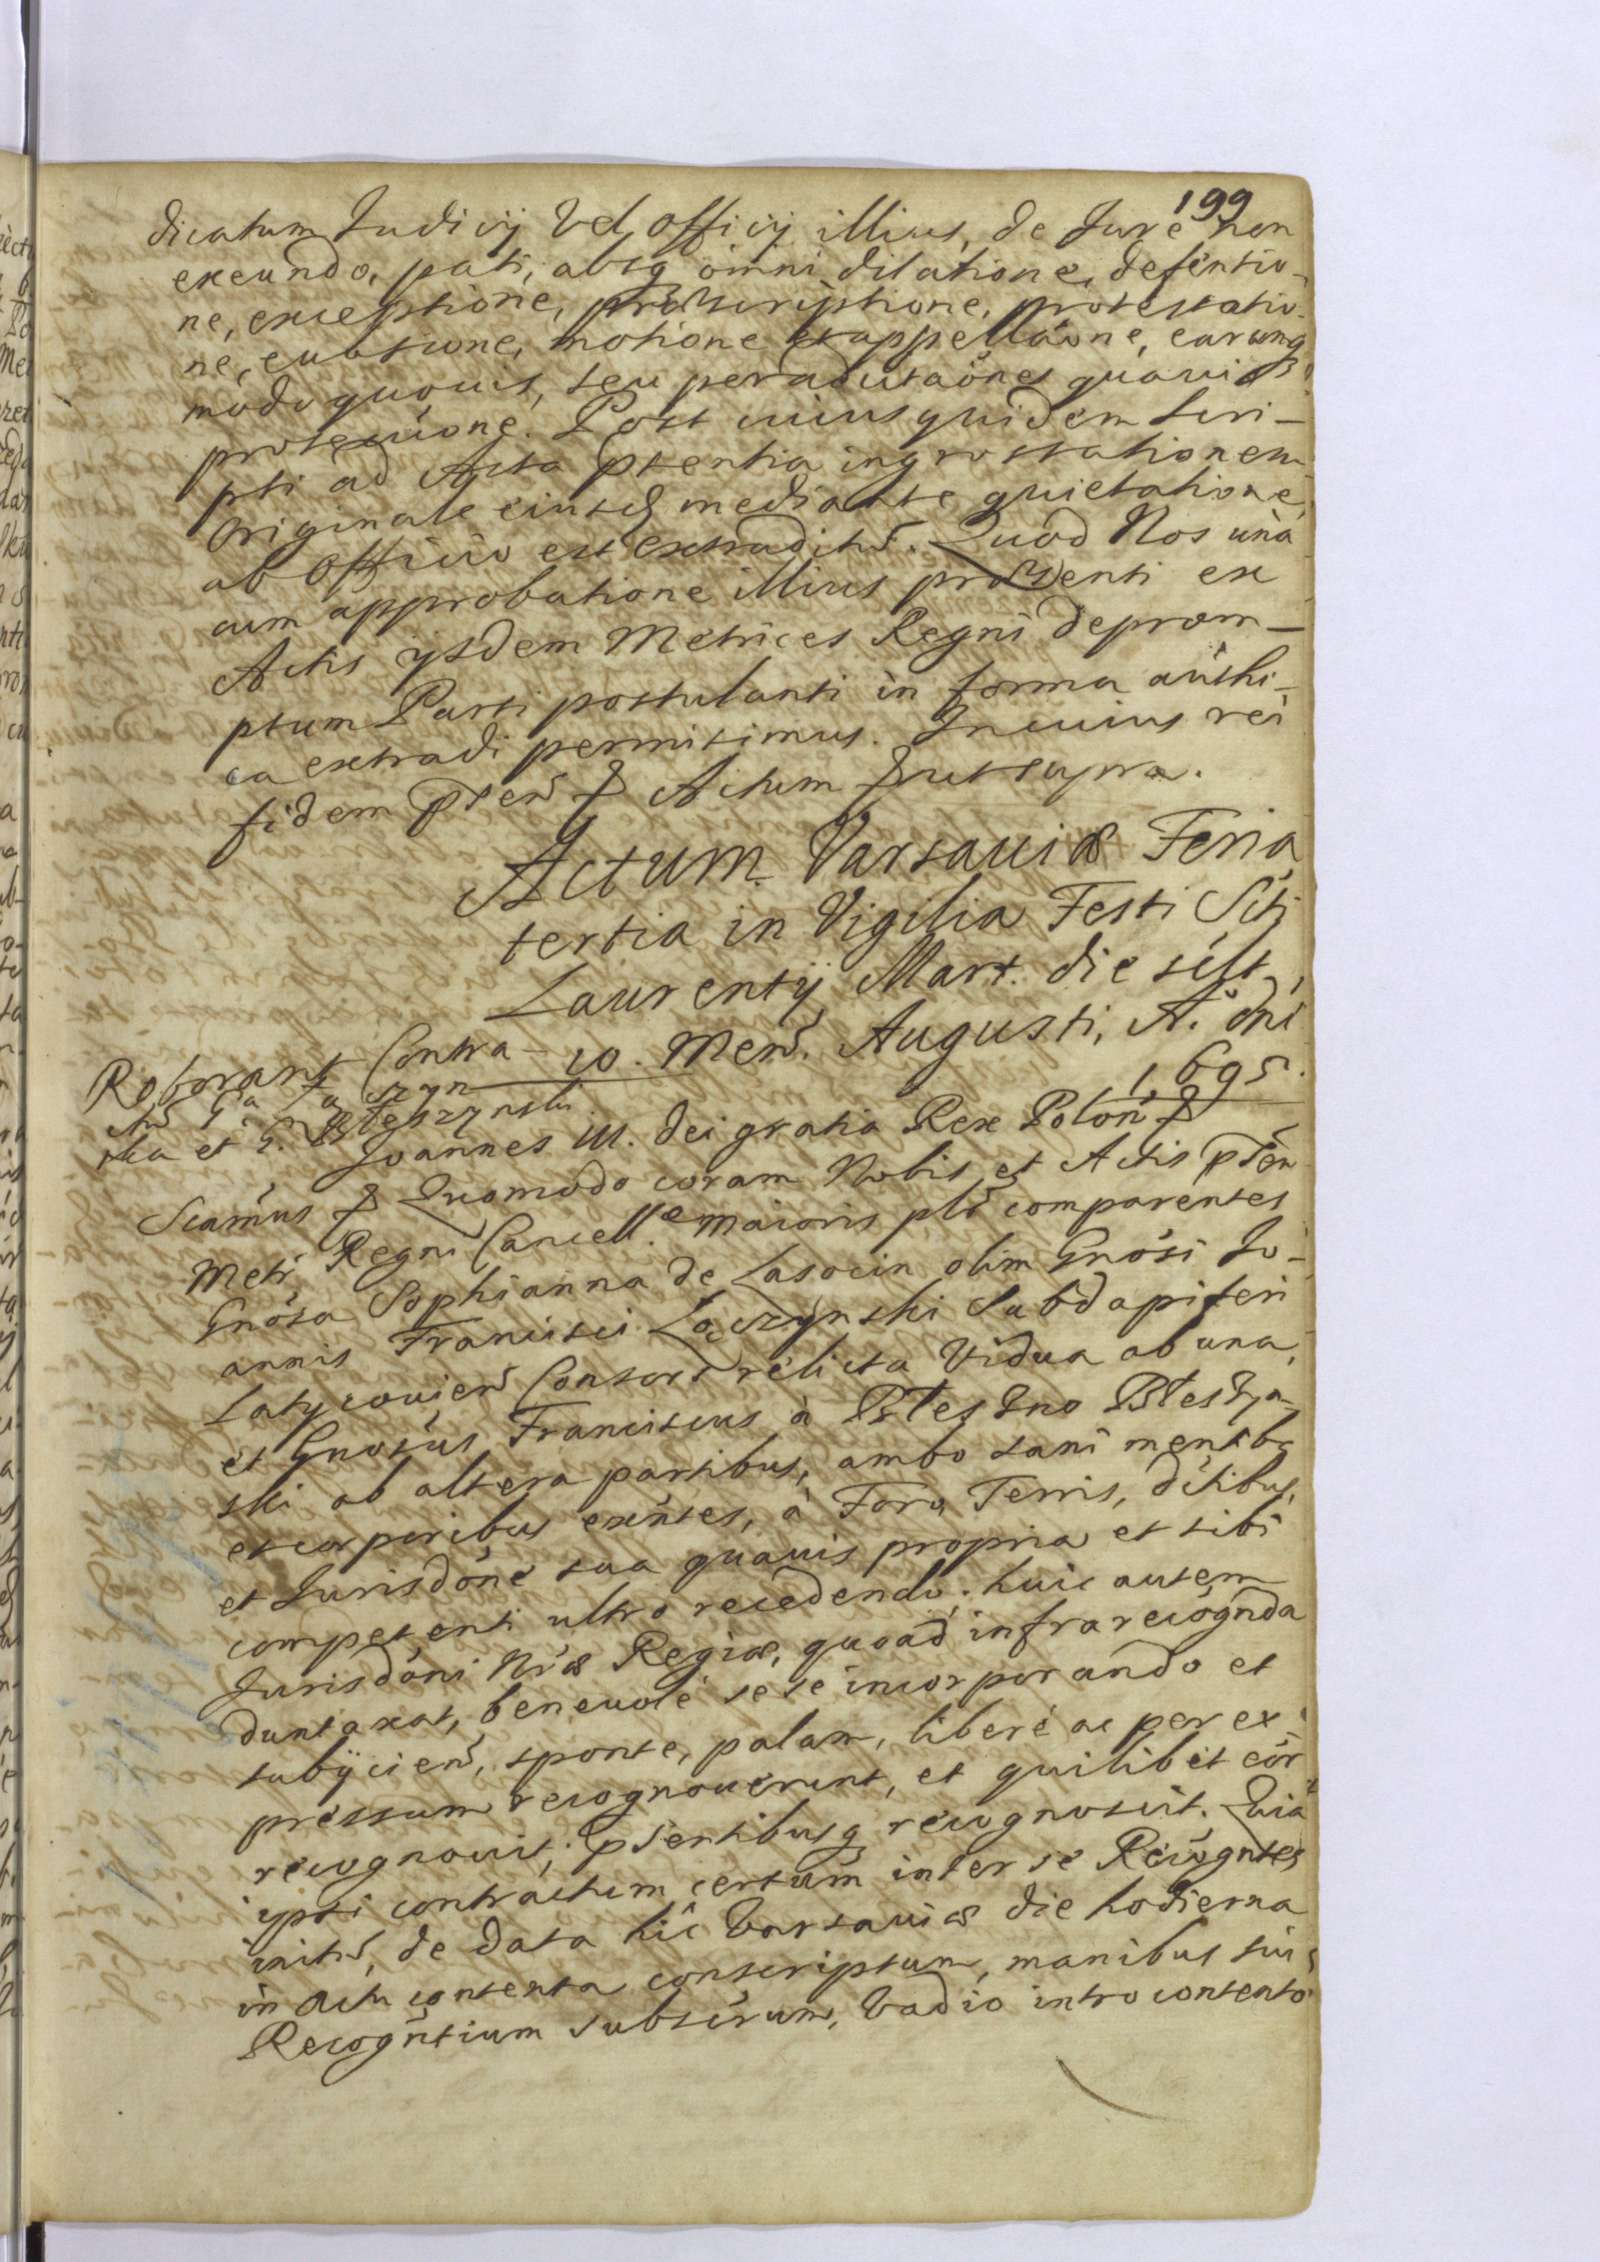 199
dicatum Judicij Vel officij illius, de Jure non
exeundo, pati, absq omni dilatione, defensio-
ne, exceptione, præscriptione, protestatio-
ne, euasione, motione et appellaöne, earumq
modo quouis, seu
protecuöne. Post cuius quidem Scri-
pti ad Acta pñtentia ingrossationem
Originale eiusd mediante quietatione,
ab Officio est extraditũ. Quod Nos unà
cum approbatione illius præsenti ex
Actis ijsdem Metrices Regni deprom-
ptum Parti postulanti in forma authi-
ca extradi permisimus. In cuius rei
fidem Actum ut supra.
Actum Varsauiæ Feria
tertia in Vigilia Festi Scti
Laurentij Mart. die scłt
10. Mens. Augusti, A. dni
1695.
Roborans Contra-
ctũ Gᵃ Łączyn
ska et G. Błeszynski
Joannes III. dei gratia Rex Polon
Scamus Quomodo coram Nobis et Actis pñtem
Metr Regni Cancellᵉ. maioris plr comparentes
Gnosa Sophianna de Lasocin olim Gnosi Jo-
annis Francisci Łączynski Subdapiferi
Latyczouien Consors relicta Vidua ab una,
et Gnosus Franciscus à Błeszno Błeszyn-
ski ab altera partibus, ambo sani mentibs
et corporibus exñtes, à Foro, Terris, dĩtibus,
et Jurisdõne sua quauis propria et sibi
competenti ultro recedendo; huic autem
Jurisdõni Nræ Regiæ, quoad infra recognda
duntaxat, beneuolé sese incorporando et
subijcien, sponte, palam, liberé ac per ex-
pressum recognouerunt, et quilibet eor
recognouit, pñsentibusq recognoscit. Quia
ipsi contractum certum inter se Recogntes
initũ, de data hic Varsauiæ die hodierna
in Actu contenta conscriptum, manibus suis
Recogñtium subscrum, Vadio intro contento